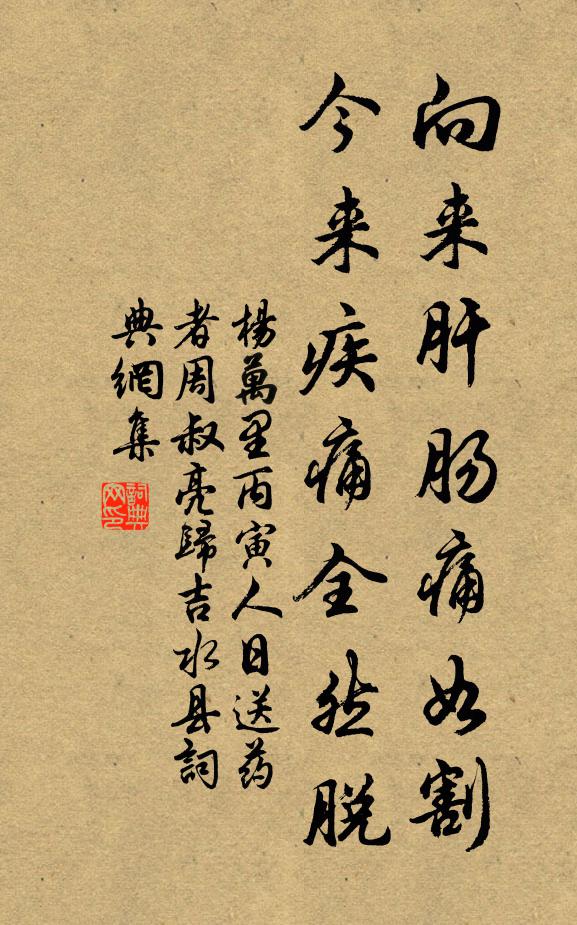 向来肝肠痛如割
今来疾痛全然脱
楊萬里丙寅人日送药
者周叔亮歸吉水县詞
典網集
詞典
网印